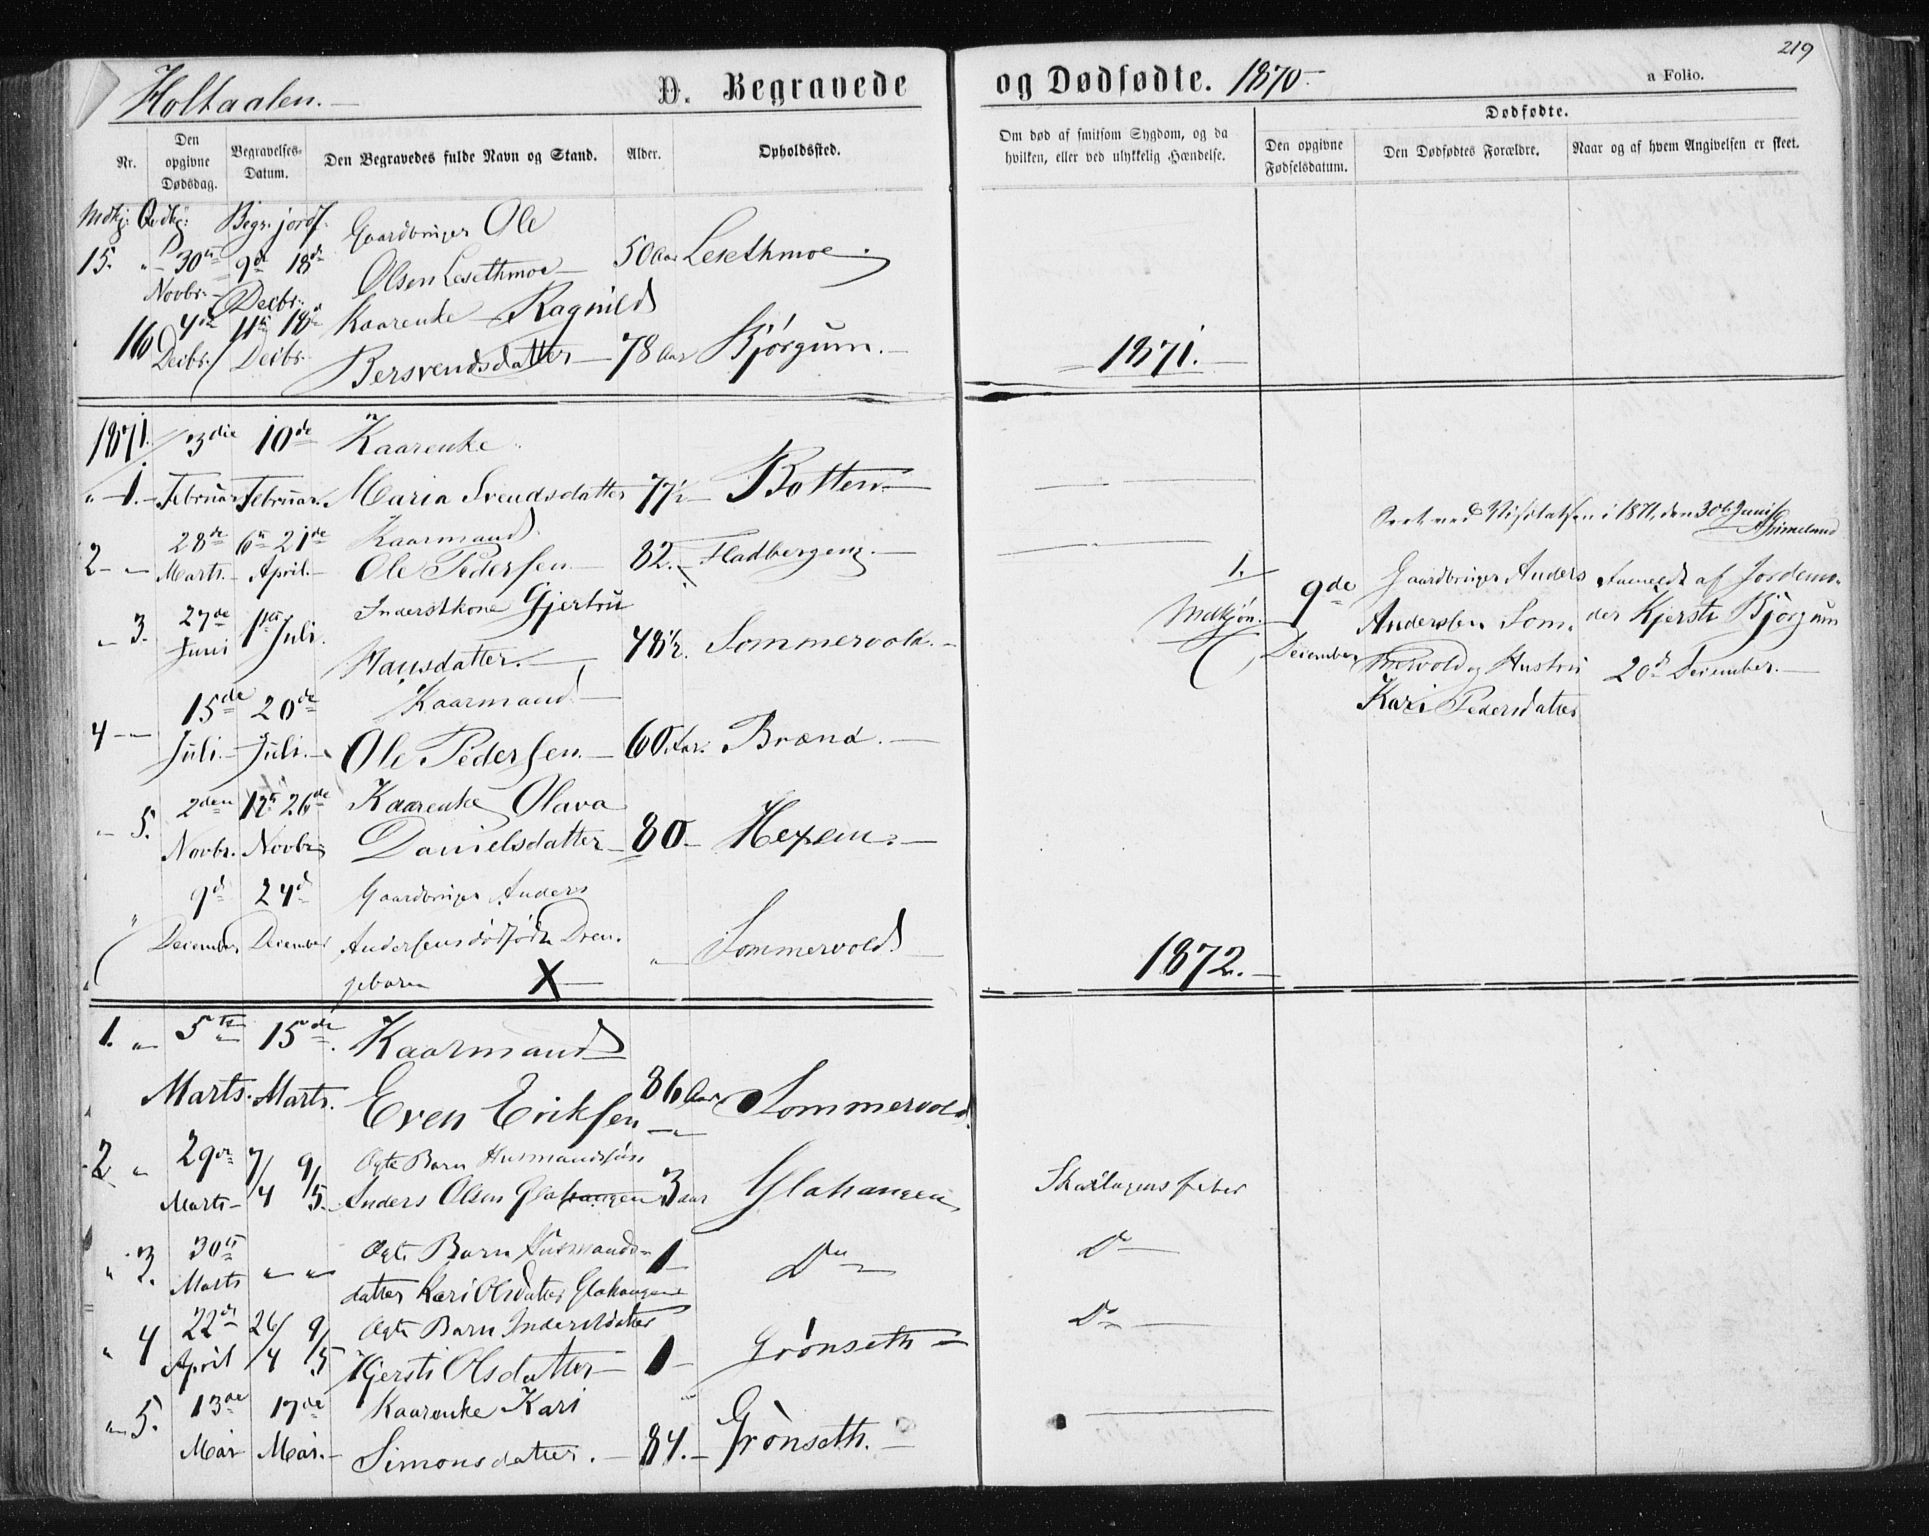 219
Holtaalen.
D. Begravede
og Dødfødte. 1870
a Folio.
Nr.
Den opgivne Dødsdag.
Begravelses-Datum.
Den Begravedes fulde Navn og Stand.
Alder.
Opholdssted.
Om død af smitsom Sygdom, og da hvilken, eller ved ulykkelig Hændelse.
Dødfødte.
Den opgivne Fødselsdatum.
Den Dødfødtes Forældre.
Naar og af hvem Angivelsen er skeet.
Mdkj: Qvdkj: Begr: jordf. Gaardbruger Ole
15. " 30te 9de 18de Olsen Lesethmoe 50 Aar Lesethmoe
Novbr. Decbr.
16 4de 11te 18de Kaarenke Ragnild
Decbr. Decbr. Bersvendsdatter 78 Aar Bjørgum.
1871.
1871. 3die 10de Kaarenke
" 1. Februar Februar. Maria Svendsdatter 77½ Botten
28de 6te 21de Kaarmand
2 " Marts. April. Ole Pedersen 82. Fladbergeng.
27de 1ste Inderstkone Gjertru
" 3. Juni Juli. Hansdatter. 48½. Sommervold.
15de 20de Kaarmand
4 " Juli. Juli. Ole Pedersen. 60 Aar. Brænd.
2den 12te 26de Kaarenke Olava
" 5. Novbr. Novbr. Danielsdatter 80. Hexem.
9de 24de Gaardbruger Anders
" December December Andersens dødfødte Dren- " Sommervold
gebarn X
i 1871, den 30te Juni
1. 9de Gaardbruger Anders Anmeldt af Jordemo-
Mdkjøn. December Andersen Som- der Kjersti Bjørgum
mervold og Hustru 20de December.
Kari Pedersdatter
1872.
1. " 5te 15de Kaarmand
Marts. Marts. Even Eriksen 86 Aar Sommervold.
2 " 29de 7/4 9/5 Ægte Barn Husmandssøn
Marts Anders Olsen Glahaugen 3 aar Glahaugen Skarlagensfeber
" 3. 30te " " Ægte Barn Husmands-
Marts datter Kari Olsdatter Glahaugen 1 Do Do
22de 26/4 9/5 Ægte Barn Inderstdatter
" 4 April Kjersti Olsdatter 1 Grønseth Do
13de 17de Kaarenke Kari
" 5. Mai Mai. Simonsdatter. 84. Grønseth.